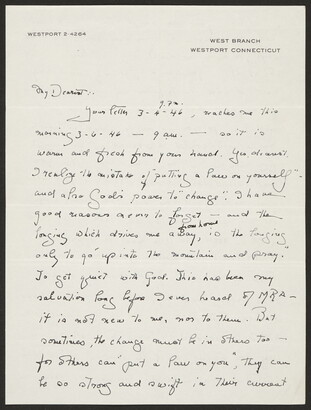 WESTPORT 2-4264
WEST BRANCH
WESTPORT CONNECTICUT
My Dearest:-
9 P.M.
Your letter 3-4-46, reaches me this
morning 3-6-46 — 9 a.m. — so it is
warm and fresh from your hand. Yes, dearest,
I realize the mistake of "putting a law on yourself"
and also God's power to "change". I have
good reasons never to forget — and the
from home
longing which drives me away, is the longing
only to go up into the mountain and pray.
To get quiet with God. This has been my
salvation long before I ever heard of MRA —
it is not new to me, nor to them. But
sometimes, the change must be in others too —
for others can "put a law on you", they can
be so strong and swift in their current